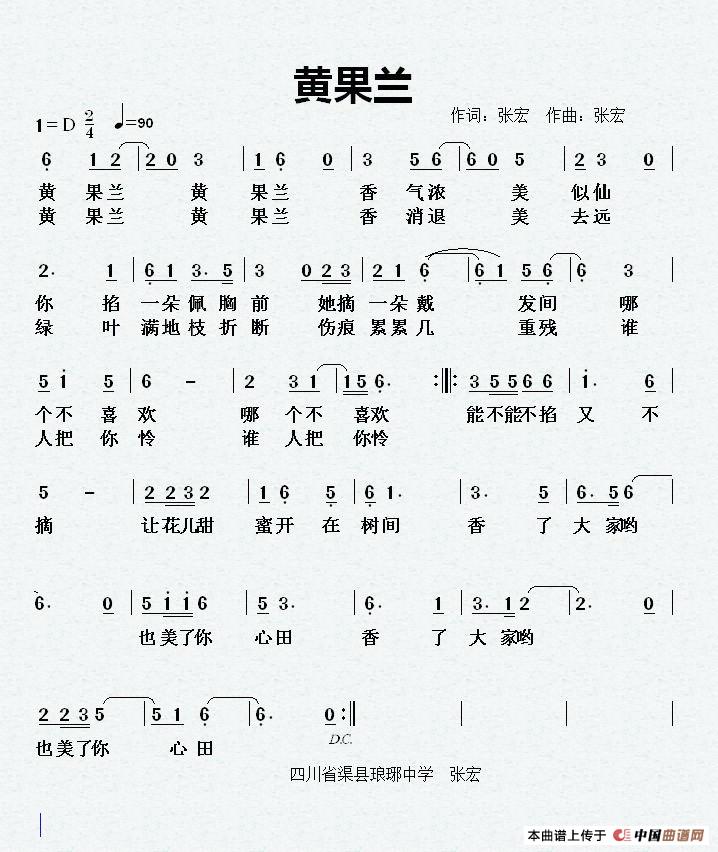 黄果兰
1=D 2/4 ♩=90 作词：张宏 作曲：张宏
6 1 2 | 2 0 3 | 1 6 0 | 3 5 6 | 6 0 5 | 2 3 0 |
黄 果兰 黄 果兰 香 气浓 美 似仙
黄 果兰 黄 果兰 香 消退 美 去远
2· 1 | 6 1 3· 5 | 3 0 2 3 | 2 1 6 | 6 1 5 6 | 6 3 |
你 掐 一朵 佩 胸前 她摘 一朵 戴 发间 哪
绿 叶 满地 枝 折断 伤痕 累累 几 重残 谁
5 1 5 | 6 - | 2 3 1 | 1 5 6· :||: 3 5 5 6 6 | 1· 6 |
个不 喜 欢 哪 个不 喜欢 能不能不掐 又 不
人把 你 怜 谁 人把 你怜
5 - | 2 2 3 2 | 1 6 5 | 6 1· | 3· 5 | 6· 5 6 |
摘 让花儿甜 蜜开 在 树间 香 了 大 家哟
6· 0 | 5 1 1 6 | 5 3· | 6· 1 | 3· 1 2 | 2· 0 |
也美了你 心田 香 了 大 家哟
2 2 3 5 | 5 1 6 | 6· 0 :|| | | |
也美了你 心 田
D.C.
四川省渠县琅琊中学 张宏
本曲谱上传于 中国曲谱网